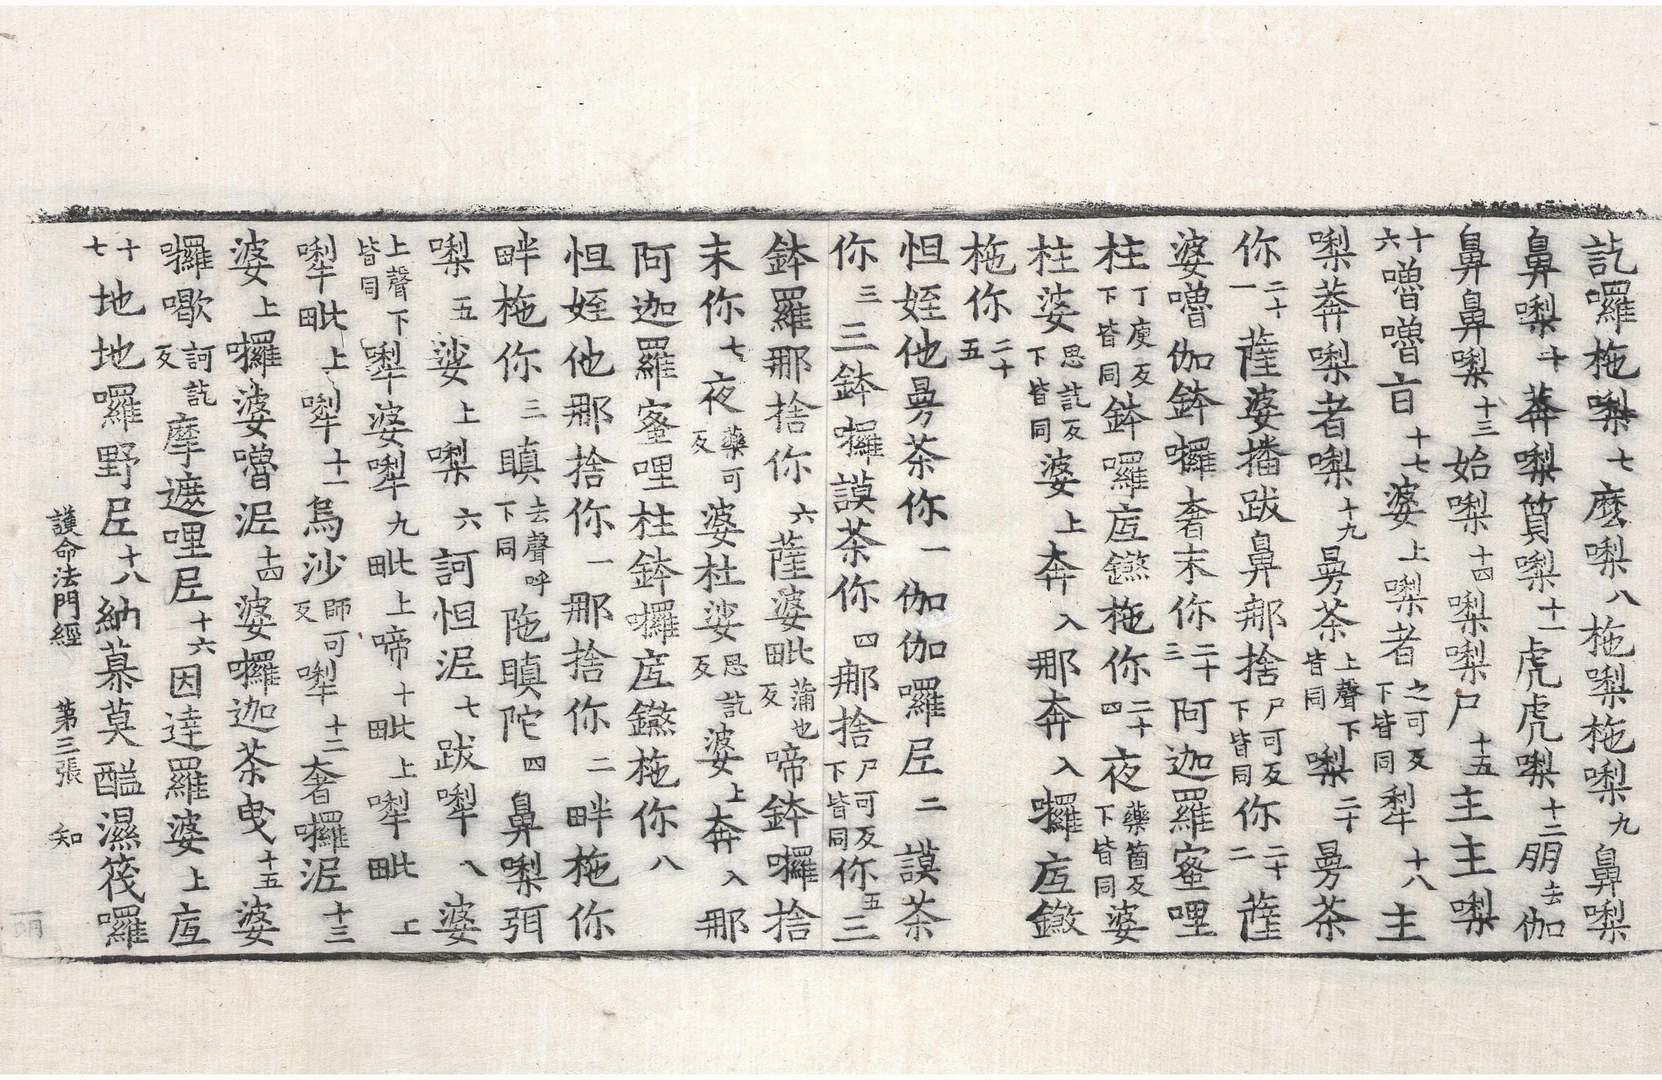 訖囉柂㗚七麼㗚八柂㗚柂㗚九鼻㗚
鼻㗚十莾㗚質㗚十一虎虎㗚十二朋去伽
鼻鼻㗚十三始㗚十四㗚㗚尸十五主主㗚
十六嚕嚕㐭十七婆上㗚者之可反下皆同犁十八主
㗚莾㗚者㗚十九㝃茶上聲下皆同㗚二十㝃茶
你二十一薩婆播跋鼻那捨尸可反下皆同你二十二薩
婆嚕伽鉢囉奢末你二十三阿迦羅蜜哩
柱丁庾反下皆同鉢囉底𨭌柂你二十四夜藥箇反下皆同婆
柱娑思訖反下皆同婆上奔入那奔入囉底𨭌
柂你二十五
怛姪他㝃茶你一伽伽羅𡰱二謨茶
你三三鉢囉謨茶你四那捨尸可反下皆同你五三
鉢羅那捨你六薩婆毗蒲也反啼鉢囉捨
末你七夜藥可反婆杜娑思訖反婆上奔入那
阿迦羅蜜哩柱鉢囉底𨭌柂你八
怛姪他那捨你一那捨你二畔柂你
畔柂你三瞋去聲呼下同陁瞋陀四鼻㗚弭
㗚五娑上㗚六訶怛泥七跋犁八婆
上聲下皆同犁婆犁九毗上啼十毗上犁毗上
犁毗上犁十一烏沙師可反犁十二奢囉泥十三
婆上囉婆嚕泥十四婆囉迦茶曳十五婆
囉歇訶訖反摩遮哩𡰱十六因達羅婆上底
十七地地囉野𡰱十八納慕莫醯濕筏囉
護命法門經　第三張　知